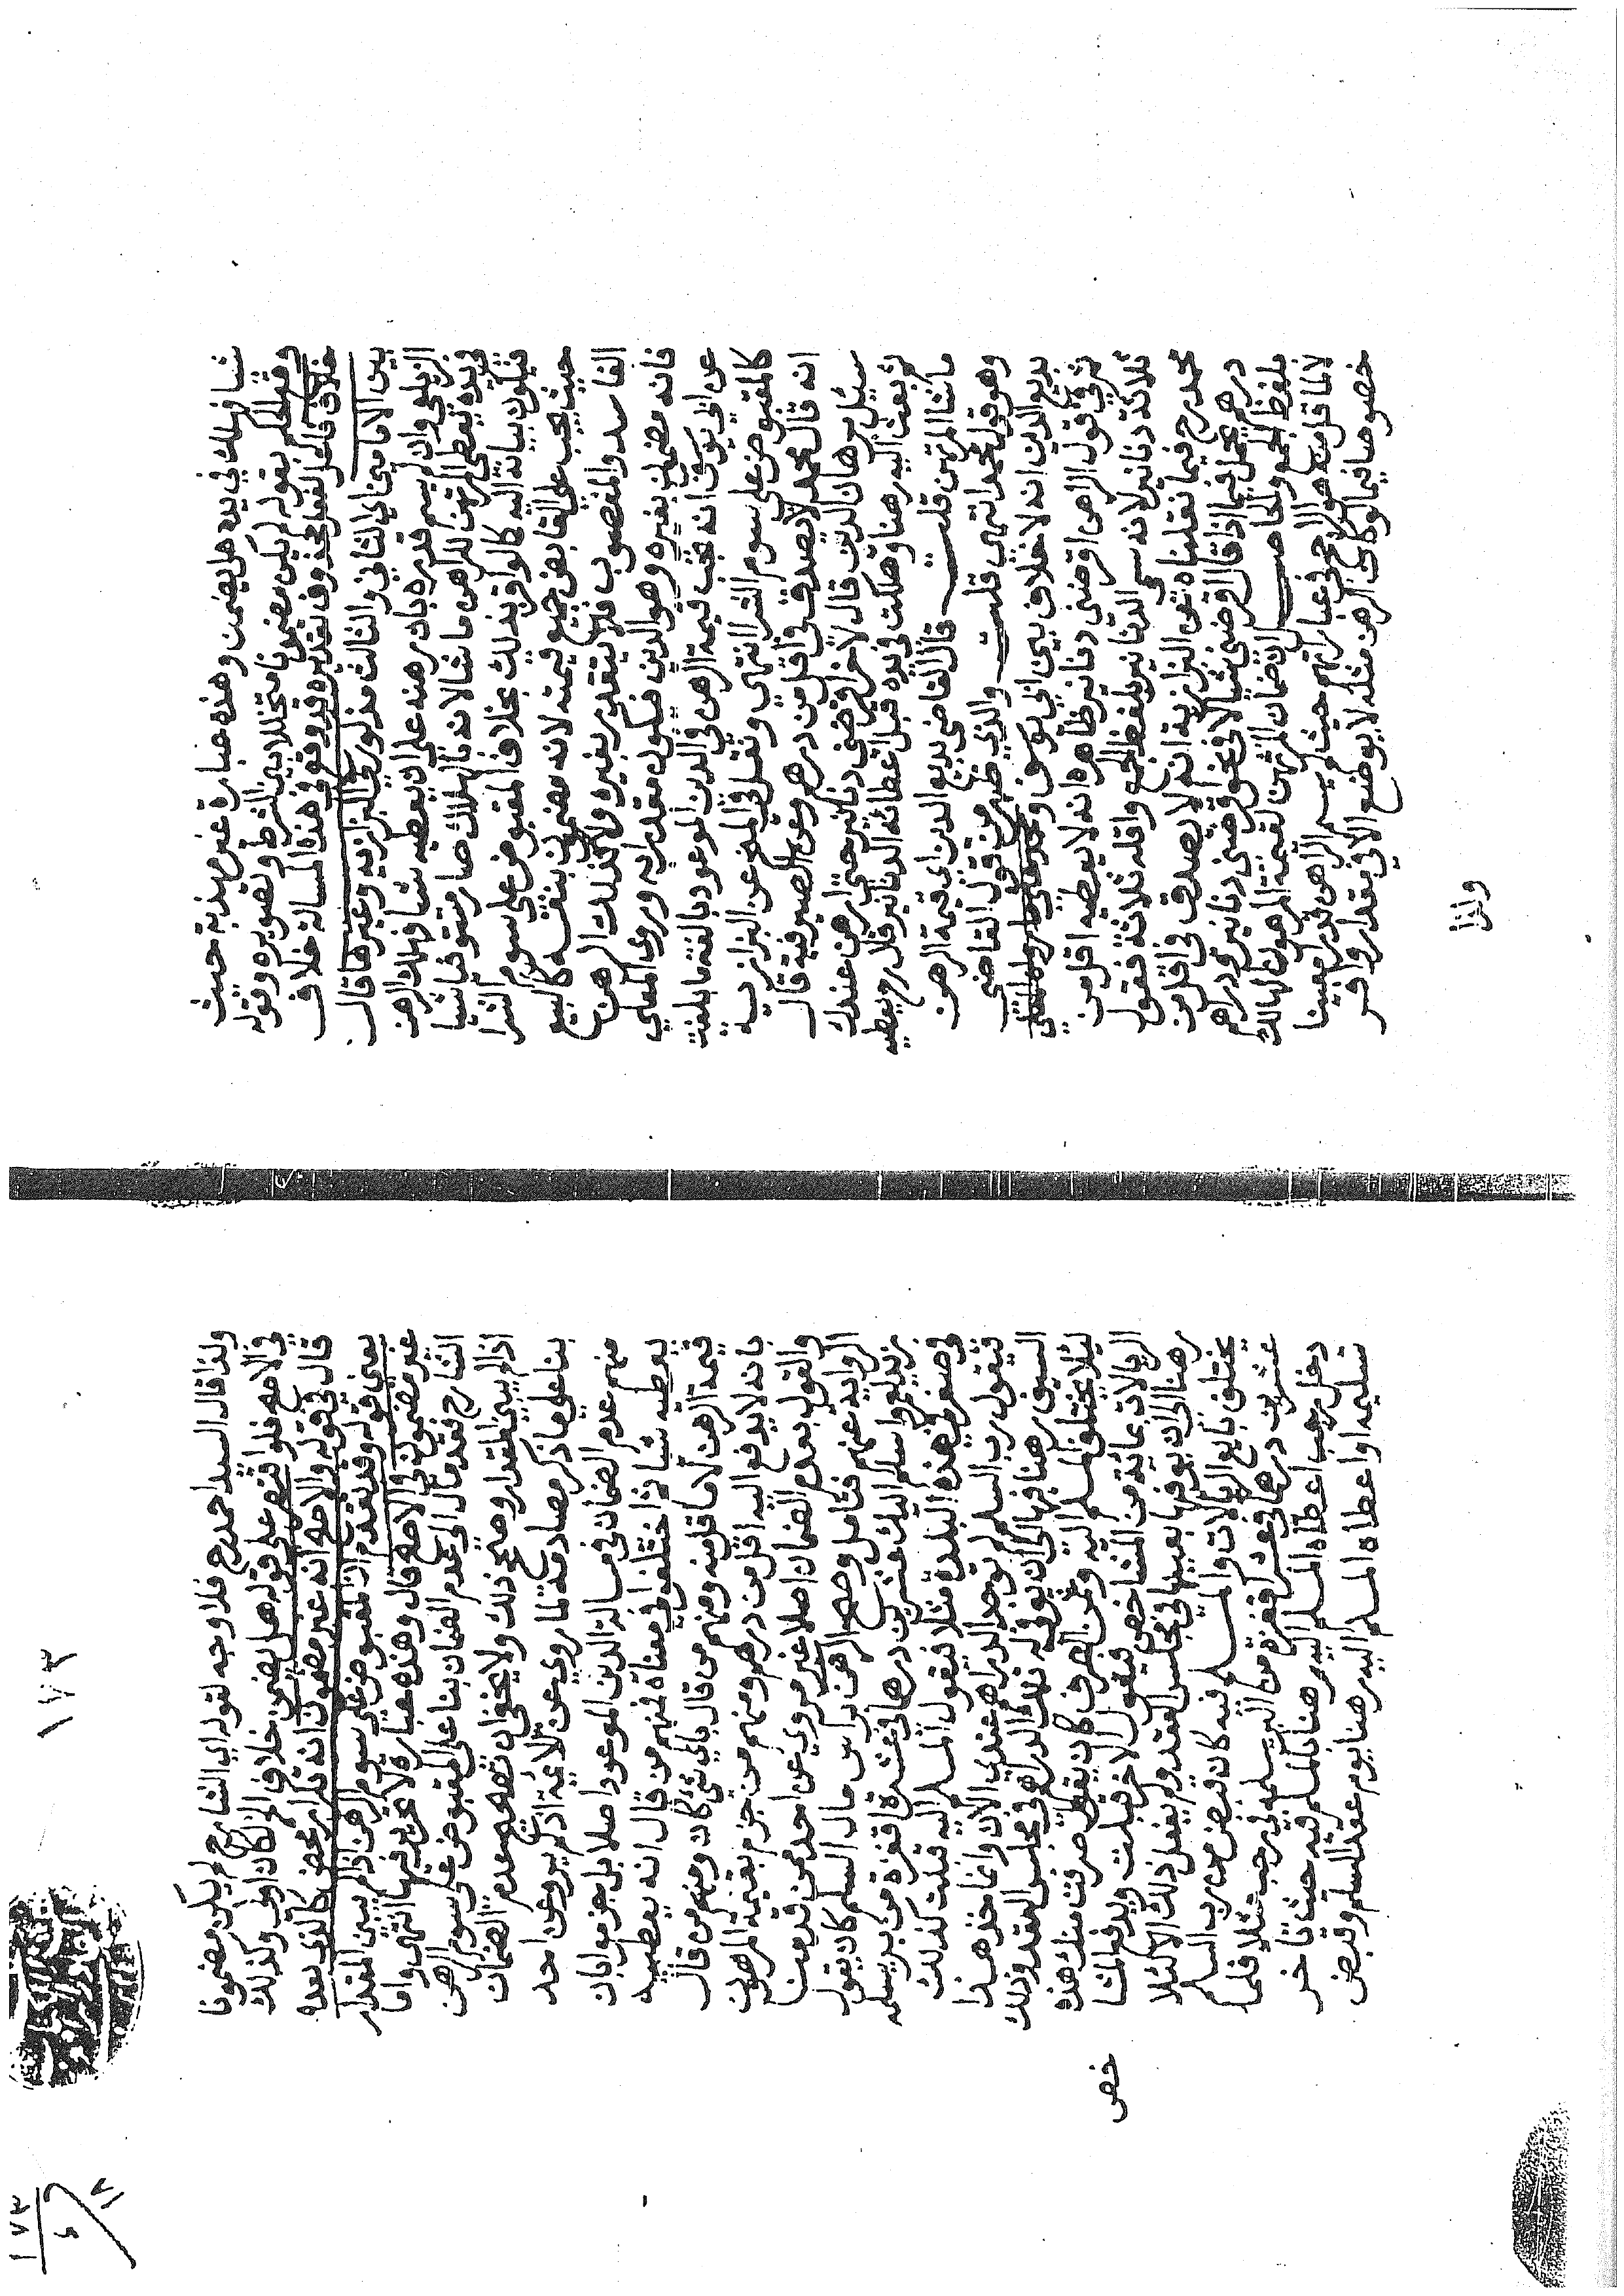 شيا وهلك في يده هل يضمن وهذه عبارة غير مهذبة حيث
وقع الحكم بقوله لم يكن مضمونا متخللا بين الشرط وتصويره وقوله
خلاف محذوف تقديره قد وقع في هذه المسالة خلاف
بين الامامين اي الثاني والثالث مذكور في البزازيه وغيرها قال
الزيلعي وان لم يسم قدره بان رهنه على ان يعطيه شيا فهلك الرهن
في يده يعطي المرتهن للراهن ما شا لانه بالهلاك صار مستوفيا شيا
فيكون بيانه اليه كما لو اقر بذلك بخلاف المقبوض على سوم الشرا
حيث يجب على القابض جميع قيمته لانه مضمون بنفسه كالبيع
الفاسد والمغصوب فلا يتقدر بغيره ولا كذلك الرهن
فانه مضمون بغيره وهو الدين فيكون مقدرا به وروى المعلي
عن ابي يوسف انه تجب قيمة الرهن في الدين الموعود بالغة ما بلغت
كالمقبوض على سوم الشرا انتهي ونقل في المنح عن البزازيه
انه قال محمد لا يصدق في اقل من درهم وعن الصيرفية قال
سيل برهان الدين قال لاخر اقرضني دنانير حتى ارهن عندك
ثم بعث اليه رهنا وهلكت في يده قبل اعطائه الدنانير قال رح يعطيه
ما شا المرتهن قلت قال القاضي بديع الدين اي قيمة الرهن
وهو قول محمد انتهي قلت والذي ظهر من قول القاضي
بديع الدين انه لا خلاف بين ابي يوسف ومحمد على ما رواه المعلي
ثم في قول الراهن اقرضني دنانير ظاهره انه لا يعطيه اقل من
ثلاثة دنانير لانه سمى الدنانير بلفظ الجمع واقله ثلاثة فقول
محمد رح فيما نقلناه عن البزازية انه لا يصدق في اقل من
درهم يحمل فيما اذا قال اقرضني شيا لا في نحو اقرضني دنانير ودراهم
بلفظ الجمع والحاصل ان ضمان المرتهن لقيمة المرهون الهالك
لا لما قل منه هو الارجح في عباراتهم حيث لم يسم الراهن قدرا معينا
خصوصا فيما لو كان الرهن مثله لا يوضع الا في مقدار وافر
ولذا
١٧٣
ولذا قال السيد احمد رح فلا وجه لقوله اي الشارح لم يكن مضمونا
في الاصح فلو اقتصر على قوله هل يضمن خلاف لكان اولى وكذلك
قال في قوله والاصح انه غير مضمون انه تكرار محض كالذي بعده
يعني قوله وقد تقدم ان المقبوض على سوم الرهن اذا لم يبين المقدار
غير مضمون في الاصح قال وهذه عبارة لا تحرير فيها انتهى واما
الشارح فقد مال الى عدم الضمان بنا على المقبوض على سوم الرهن
اذا لم يبين المقدار وصحح ذلك ولا يخفى ان تصحيح عدم الضمان
بنا على ما ذكر مصادمة لما روي عن الايمة اذ لم يرو عن احد
منهم عدم الضمان في مسالة الدين الموعود اصلا بل جزموا بان
يعطيه شيا واختلفوا في معناه فمنهم من قال انه يعطيه
قيمة الرهن لا ما قل منه ومنهم من قال باي شي كان ومنهم من قال
بانه لا يدفع اليه اقل من درهم ومنهم من جزم بقيمة المرهون
والقول بعدم الضمان اصلا غير مروي عن احد من قدمت
الرواية عنهم فتامل وصح الرهن براس مال السلم كان يقول
زيد لعمرو اسلم اليك عشرين درهما في عشرة اقفزة من بر يسلمه
في صفر في هذه البلدة مثلا فيقول المسلم اليه قبلت كذلك
فيقول رب السلم لم توجد الدراهم عندي الان وانما خذ هذا
السيف رهنا فيها الى ان يوفي له تلك الدراهم في مجلس العقد وذلك
ليلا يختلق المسلم اليه وثمن الصرف كان يقول صرفت منك هذه
الريالات بماية من المشاخص فيقول الاخر قبلت ويدفع المشا
خص
رهنا الى ان يوفيها بعينها في مجلس العقد ولم يفعل ذلك الا ليلا
يختلق بايع الريالات والمسلم فيه كان قبض من رب السلم
عشرين درهما في عشر اقفزة من البر يسلمه في رجب مثلا فلما
دخل رجب اعطاه المسلم اليه رهنا بالمسلم فيه حيث تاخر
تسليمه او اعطاه المسلم اليه رهنا يوم عقد السلم وقبض
١٧٣